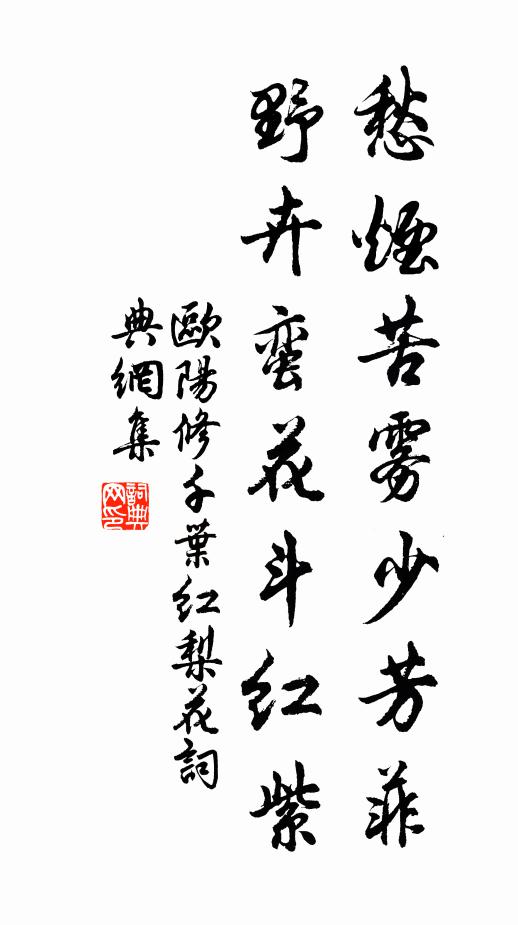 愁煙苦雾少芳菲
野卉蛮花斗红紫
歐陽修千葉红梨花詞
典網集
詞典网印